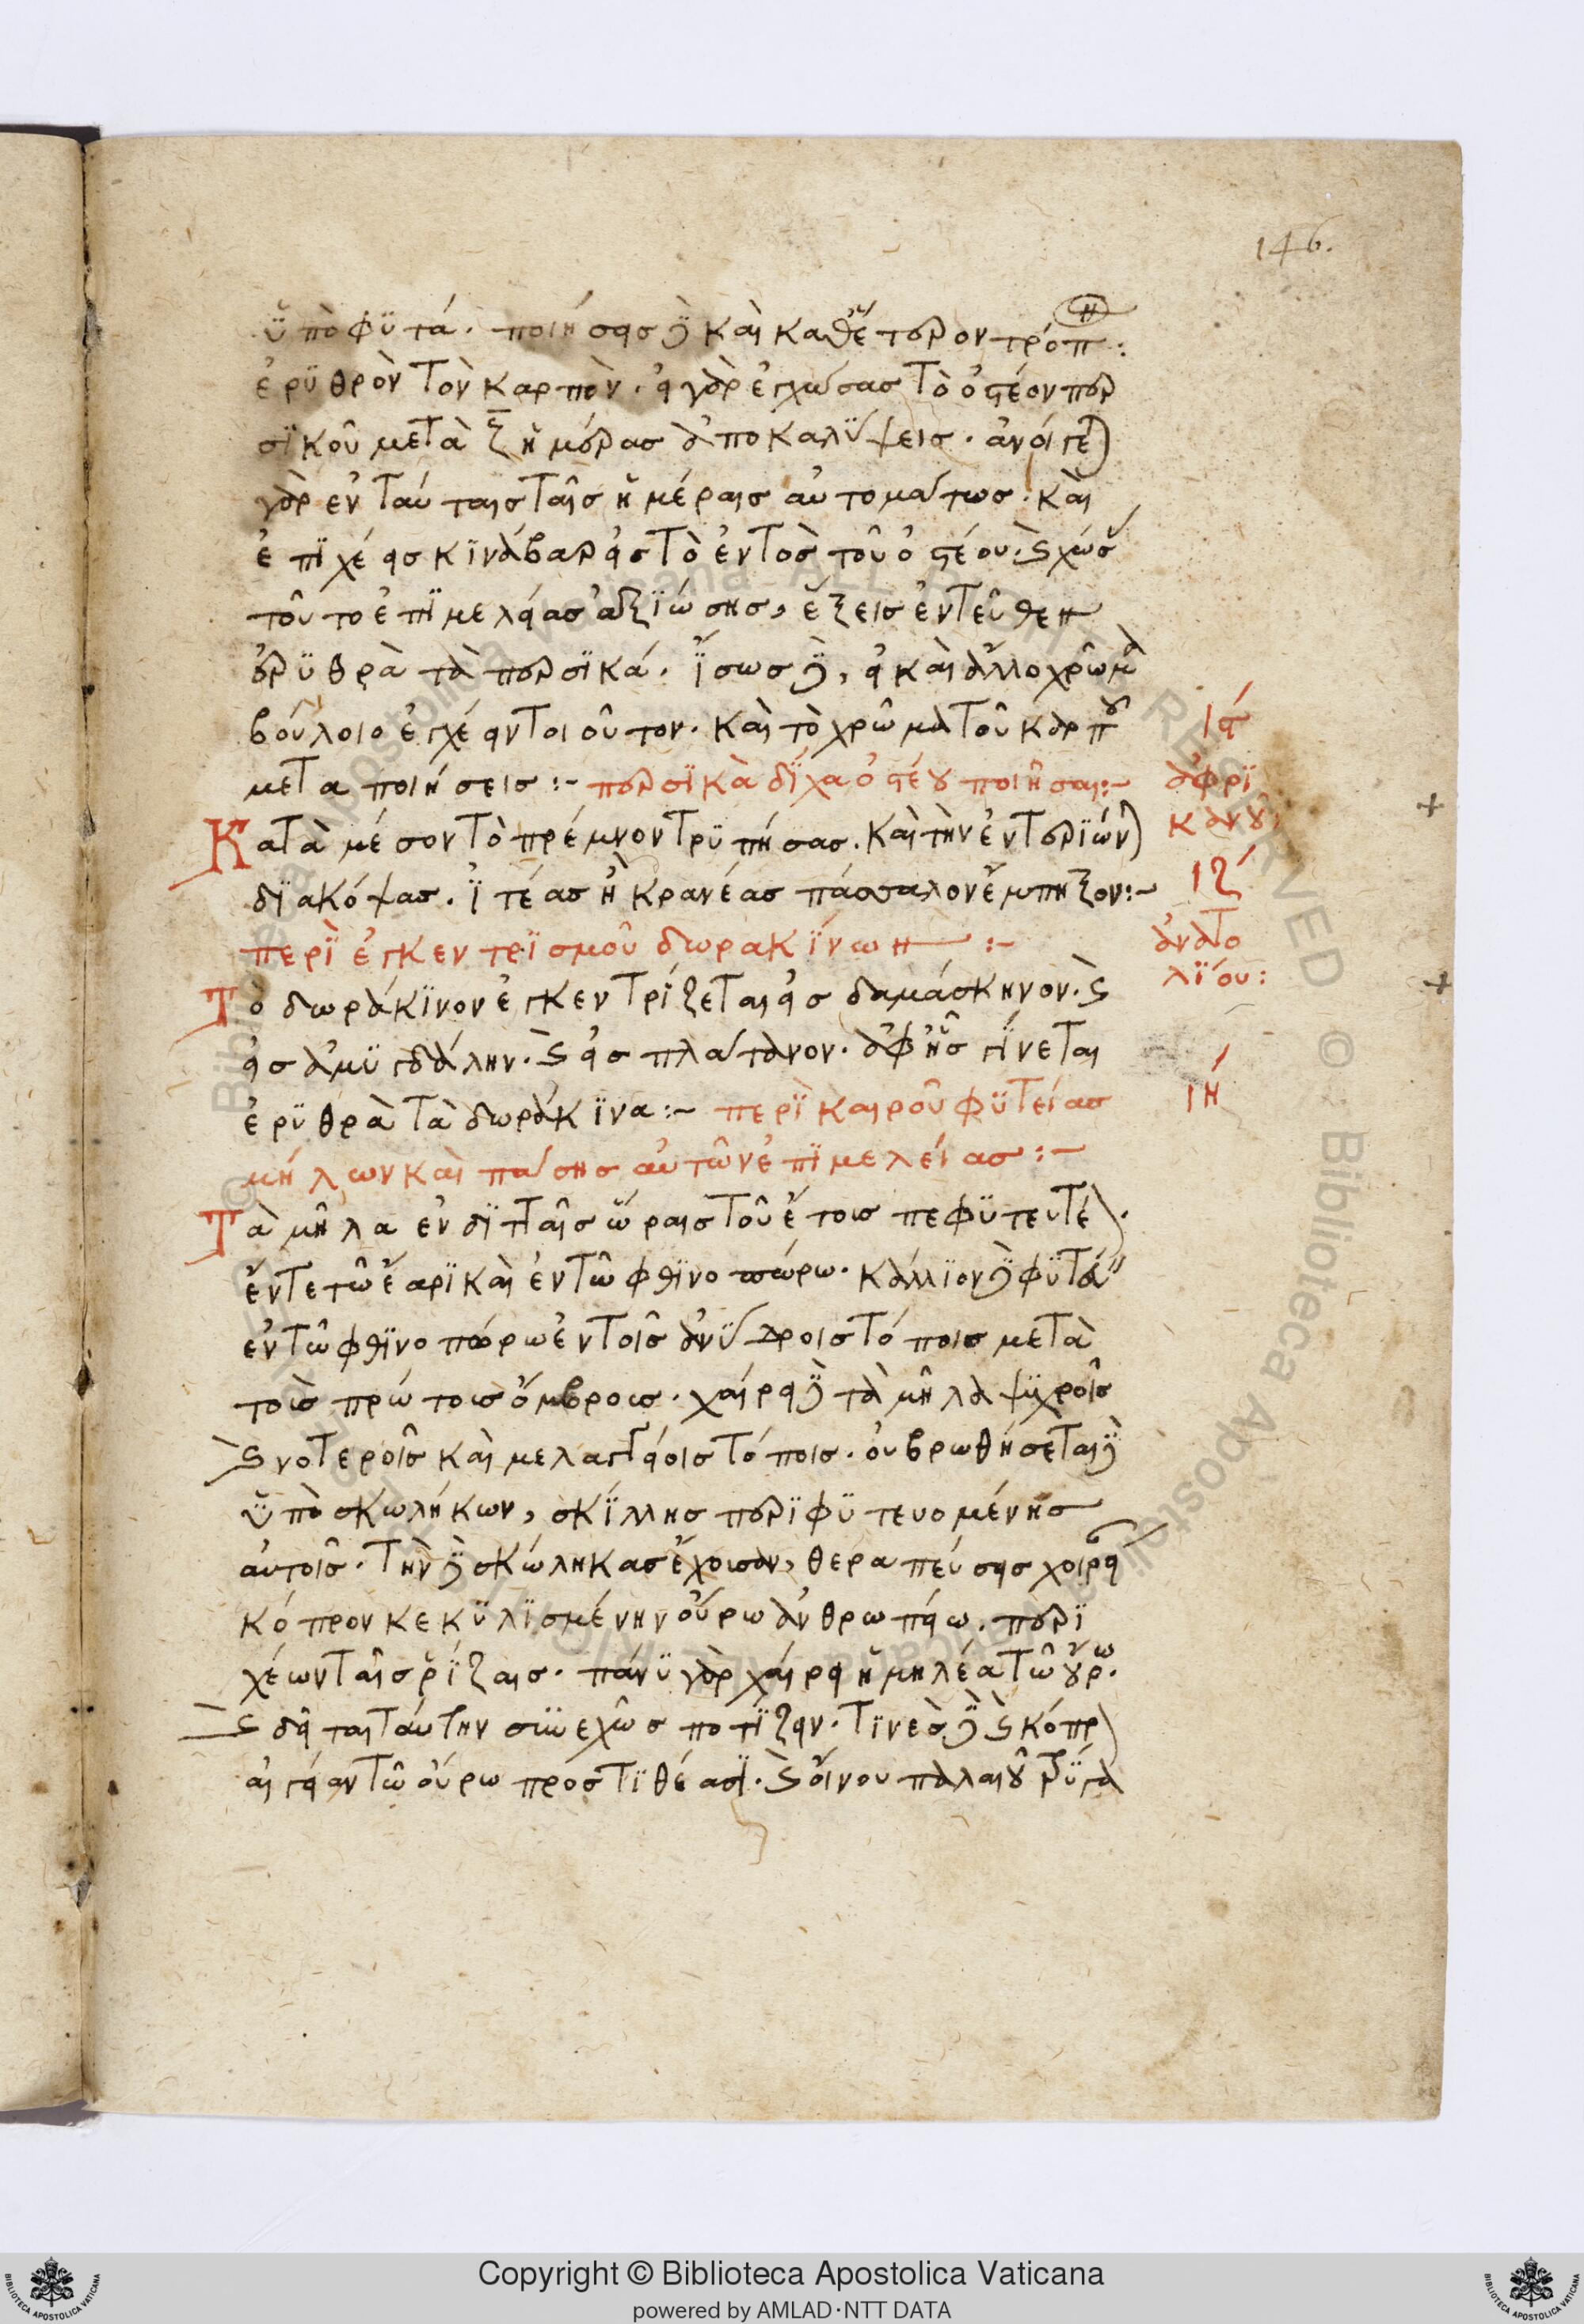 146.
ὑπὸ φυτά. ποιήσεις δὲ καὶ καθ' ἕτερον τρόπον:
ἐρυθρὸν τὸν καρπὸν. εἰ γὰρ ἐγχώσας τὸ ὀστέον περ
σικοῦ μετὰ ζ ἡμέρας ἀποκαλύψεις. ἀνοίγεται
γὰρ ἐν ταύταις ταῖς ἡμέραις αὐτομάτως. καὶ
ἐπιχέεις κινάβαρ εἰς τὸ ἐντὸς τοῦ ὀστέου. καὶ χώσ
τοῦτο ἐπιμελείας ἀξιώσης, ἕξεις ἐντεῦθεν
ἐρυθρὰ τὰ περσικά. ἴσως δὲ, εἰ καὶ ἄλλο χρῶμα
βούλοιο ἐγχέειν τοιοῦτον. καὶ τὸ χρῶμα τοῦ καρποῦ
ις
μεταποιήσεις:- περσικὰ δίχα ὀστέου ποιῆσαι:-
ἀφρι
Κατὰ μέσον τὸ πρέμνον τρυπήσας. καὶ τὴν ἐντεριώνην
κανοῦ:
διακόψας. ἰτέας ἢ κρανέας πάσσαλον ἔμπηξον:-
ιζ
περὶ ἐγκεντρισμοῦ δωρακίνων:-
ἀνατο
λίου:
Τὸ δωράκινον ἐγκεντρίζεται εἰς δαμάσκηνον. καὶ
εἰς ἀμυγδάλην. καὶ εἰς πλάτανον. ἀφ' ἧς γίνεται
ἐρυθρὰ τὰ δωράκινα:- περὶ καιροῦ φυτείας
ιη
μήλων καὶ πάσης αὐτῶν ἐπιμελείας:-
Τὰ μῆλα ἐν διτταῖς ὥραις τοῦ ἔτους πεφυτευτέον.
ἔν τε τῶ ἔαρι καὶ ἐν τῶ φθινοπώρω. κάλλιον δὲ φυτά
ἐν τῶ φθινοπώρω ἐν τοῖς ἀνύδροις τόποις μετὰ
τοὺς πρώτους ὄμβρους. χαίρει δὲ τὰ μῆλα ψυχροῖς
καὶ νοτεροῖς καὶ μελαγγείοις τόποις. οὐ βρωθήσεται δὲ
ὑπὸ σκωλήκων, σκίλλης περιφυτευομένης
αὐτοῖς. τὴν δὲ σκώληκας ἔχουσαν, θεραπεύσεις χοιρεί
κόπρον κεκυλισμένην οὔρω ἀνθρωπείω. περι
χέων ταῖς ῥίζαις. πάνυ γὰρ χαίρει ἡ μηλέα τῶ οὔρω.
καὶ δεῖται ταύτην συνεχῶς ποτίζειν. τινὲς δὲ καὶ κόπρ
αἰγείαν τῶ οὔρω προστιθέασι. καὶ οἴνου παλαιοῦ τρύγα
Copyright © Biblioteca Apostolica Vaticana
powered by AMLAD·NTT DATA